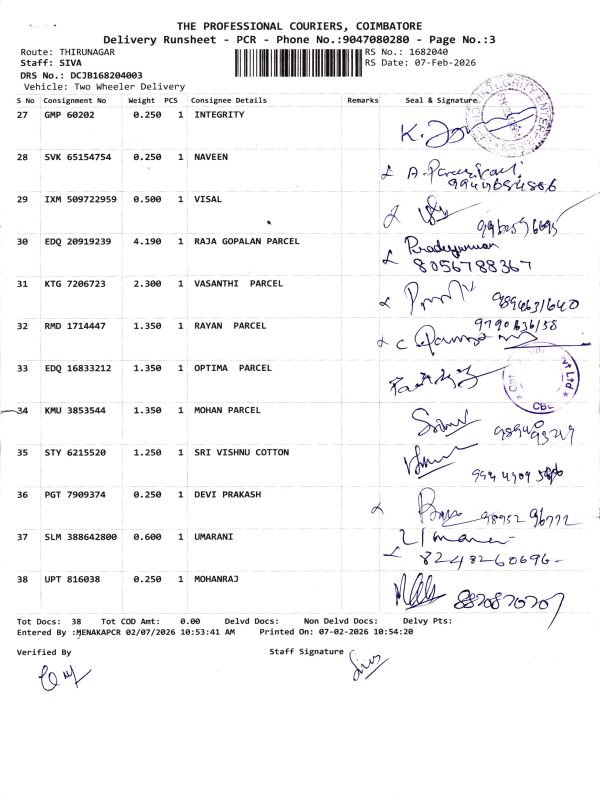 THE PROFESSIONAL COURIERS, COIMBATORE
Delivery Runsheet - PCR - Phone No.:9047080280 - Page No.:3
Route: THIRUNAGAR RS No.: 1682040
Staff: SIVA RS Date: 07-Feb-2026
DRS No.: DCJB168204003
Vehicle: Two Wheeler Delivery
S No Consignment No Weight PCS Consignee Details Remarks Seal & Signature
27 GMP 60202 0.250 1 INTEGRITY
28 SVK 65154754 0.250 1 NAVEEN
29 IXM 509722959 0.500 1 VISAL
30 EDQ 20919239 4.190 1 RAJA GOPALAN PARCEL
8056788367
31 KTG 7206723 2.300 1 VASANTHI PARCEL
9894631640
32 RMD 1714447 1.350 1 RAYAN PARCEL
9790636158
33 EDQ 16833212 1.350 1 OPTIMA PARCEL
34 KMU 3853544 1.350 1 MOHAN PARCEL
35 STY 6215520 1.250 1 SRI VISHNU COTTON
36 PGT 7909374 0.250 1 DEVI PRAKASH
98952 96772
37 SLM 388642800 0.600 1 UMARANI
8248260696-
38 UPT 816038 0.250 1 MOHANRAJ
8870870707
Tot Docs: 38 Tot COD Amt: 0.00 Delvd Docs: Non Delvd Docs: Delvy Pts:
Entered By :MENAKAPCR 02/07/2026 10:53:41 AM Printed On: 07-02-2026 10:54:20
Verified By Staff Signature